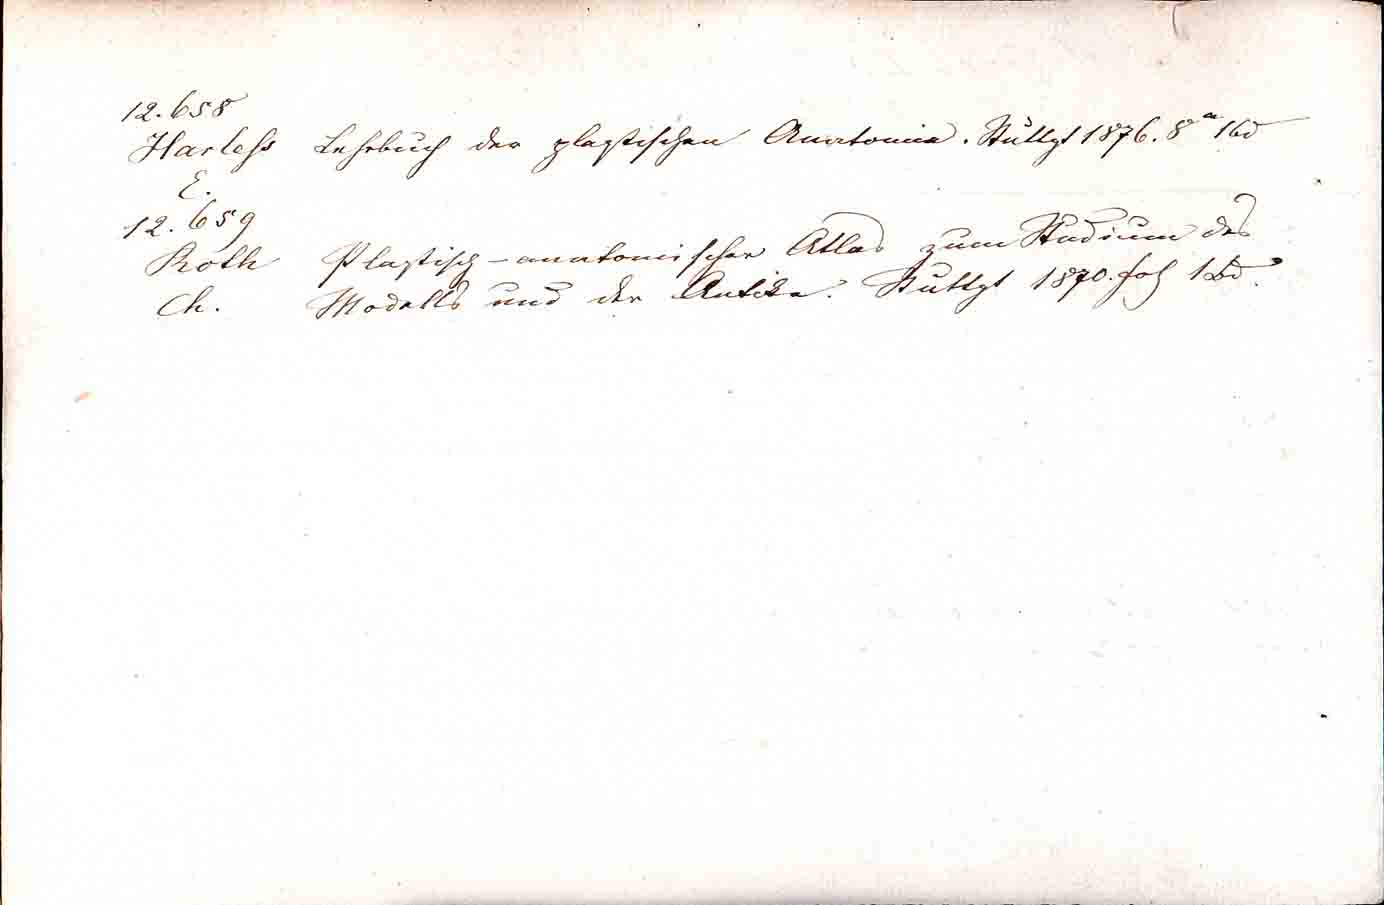 12.658
Harless Lehrbuch der plastischen Anatomie. Stuttgt 1876. 8° 1 Bd
E.
12.659
Roth Plastisch-anatomischer Atlas zum Studium des
Ch. Modells und der Antike. Stuttgt 1870. fol 1 Bd.